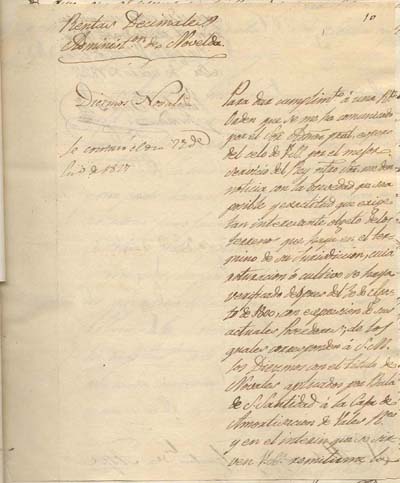 Rentas Decimales
Administ.on de Novelda
10
Diezmos Novales
Se contextó el dia 23 de
Julio de 1817
Para dar cumplimt.o á una Rl.
orden que se me ha comunicado
por el
del celo de V.S. por el mejor
servicio del Rey ntro
noticia con la brevedad que sea
posible y exactitud que exige
tan interesante objeto de los
terrenos que haya en el ter-
mino de su Jurisdiccion, cuia
roturacion ó cultivo se haya
verificado despues del 30 de
to de 1800, con expresion de sus
actuales Poseedores, de los
quales corresponden á S.M.
los Diezmos con el titulo de
Novales aplicados por Bula
de S. Santidad á la Caja de
Amortizacion de Vales R.s
y en el interin que se sir-
ven V.SS. remitirme la